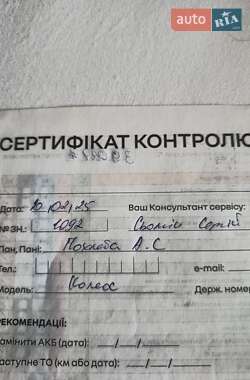 auto RIA
СЕРТИФІКАТ КОНТРОЛЮ
Дата: 10.02.25 Ваш Консультант сервісу:
№ ЗН.: 1092
Пан, Пані: А.С
Тел.: e-mail:
Модель: Колеос Держ. номер
РЕКОМЕНДАЦІЇ:
амінити АКБ (дата): / /
аступне ТО (км або дата): / /